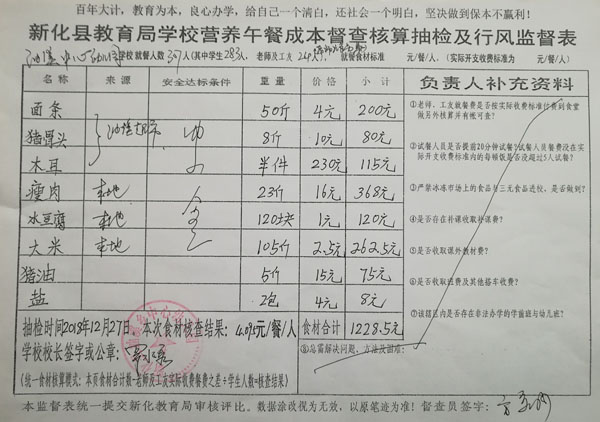 百年大计，教育为本，良心办学，给自己一个清白，还社会一个明白，坚决做到保本不赢利！
新化县教育局学校营养午餐成本督查核算抽检及行风监督表
学校就餐人数 (其中学生283人，老师及工友 人) 就餐食材标准 元/餐/人，(实际开支收费标准为 元/餐/人)
名称 来源 安全达标条件 重量 价格 小计 负责人补充资料
面条 50斤 4元 200元
猪骨头 8斤 10元 80元
木耳 半件 230元 115元
瘦肉 本地 23斤 16元 368元
水豆腐 本地 120块 1元 120元
大米 本地 105斤 2.5元 262.5元
猪油 5斤 15元 75元
盐 2包 4元 8元
①老师、工友就餐费是否按实际收费标准付费到食堂
做另外核算并有帐可查？
②试餐人员是否提前20分钟试餐？试餐人员餐费没在实
际开支收费标准内的每顿饭是否没超过5人试餐？
③严禁冰冻市场上的食品与三无食品进校，是否做到？
④是否存在补课收取补课费？
⑤是否收取课外教材费？
⑥是否收取班费及其他搭车收费？
⑦该辖区内是否存在非法办学的学前班与幼儿班？
⑧总需解决问题，方法及困难：
抽检时间2018年12月27日 本次食材核查结果： 元/餐/人 食材合计 1228.5元
学校校长签字或公章：
(统一食材核算模式：本页食材合计数-老师及工友实际收费餐费之差÷学生人数=核查结果)
本监督表统一提交新化教育局审核评比。数据涂改视为无效，以原笔迹为准！督查员签字：